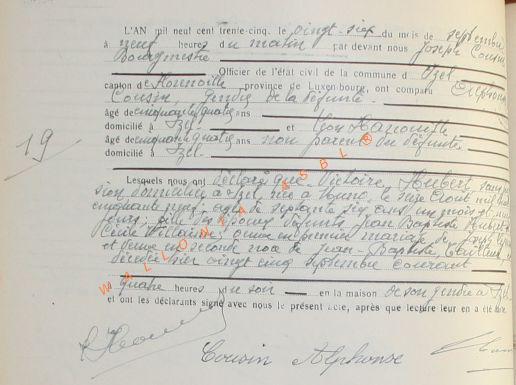 L'AN mil neuf cent trente-cinq, le vingt-six du mois de septembre
à neuf heures du matin par devant nous Joseph Cousin
Bourgmestre
Officier de l'état civil de la commune d'Izel
canton de Florenville, province de Luxembourg, ont comparu Alphonse
Cousin, gendre de la défunte
âgé de cinquante quatre ans
domicilié à Izel et Léon
âgé de cinquante quatre ans non parent du défunte
domicilié à Izel
19
Lesquels nous ont déclaré que Victoire Hubert, sans
à Izel, née à le seize Août mil huit
cinquante neuf, âgée de septante six ans un mois et neuf
jours, fille des époux défunts Jean Baptiste Hubert
Cécile veuve en premier mariage de
et veuve en seconde noce de Jean-Baptiste
décédée hier vingt cinq septembre courant
quatre heures du soir en la maison de son gendre à Izel
et ont les déclarants signé avec nous le présent acte, après que lecture leur en a été
WALLONIA ASBL ®
Cousin Alphonse